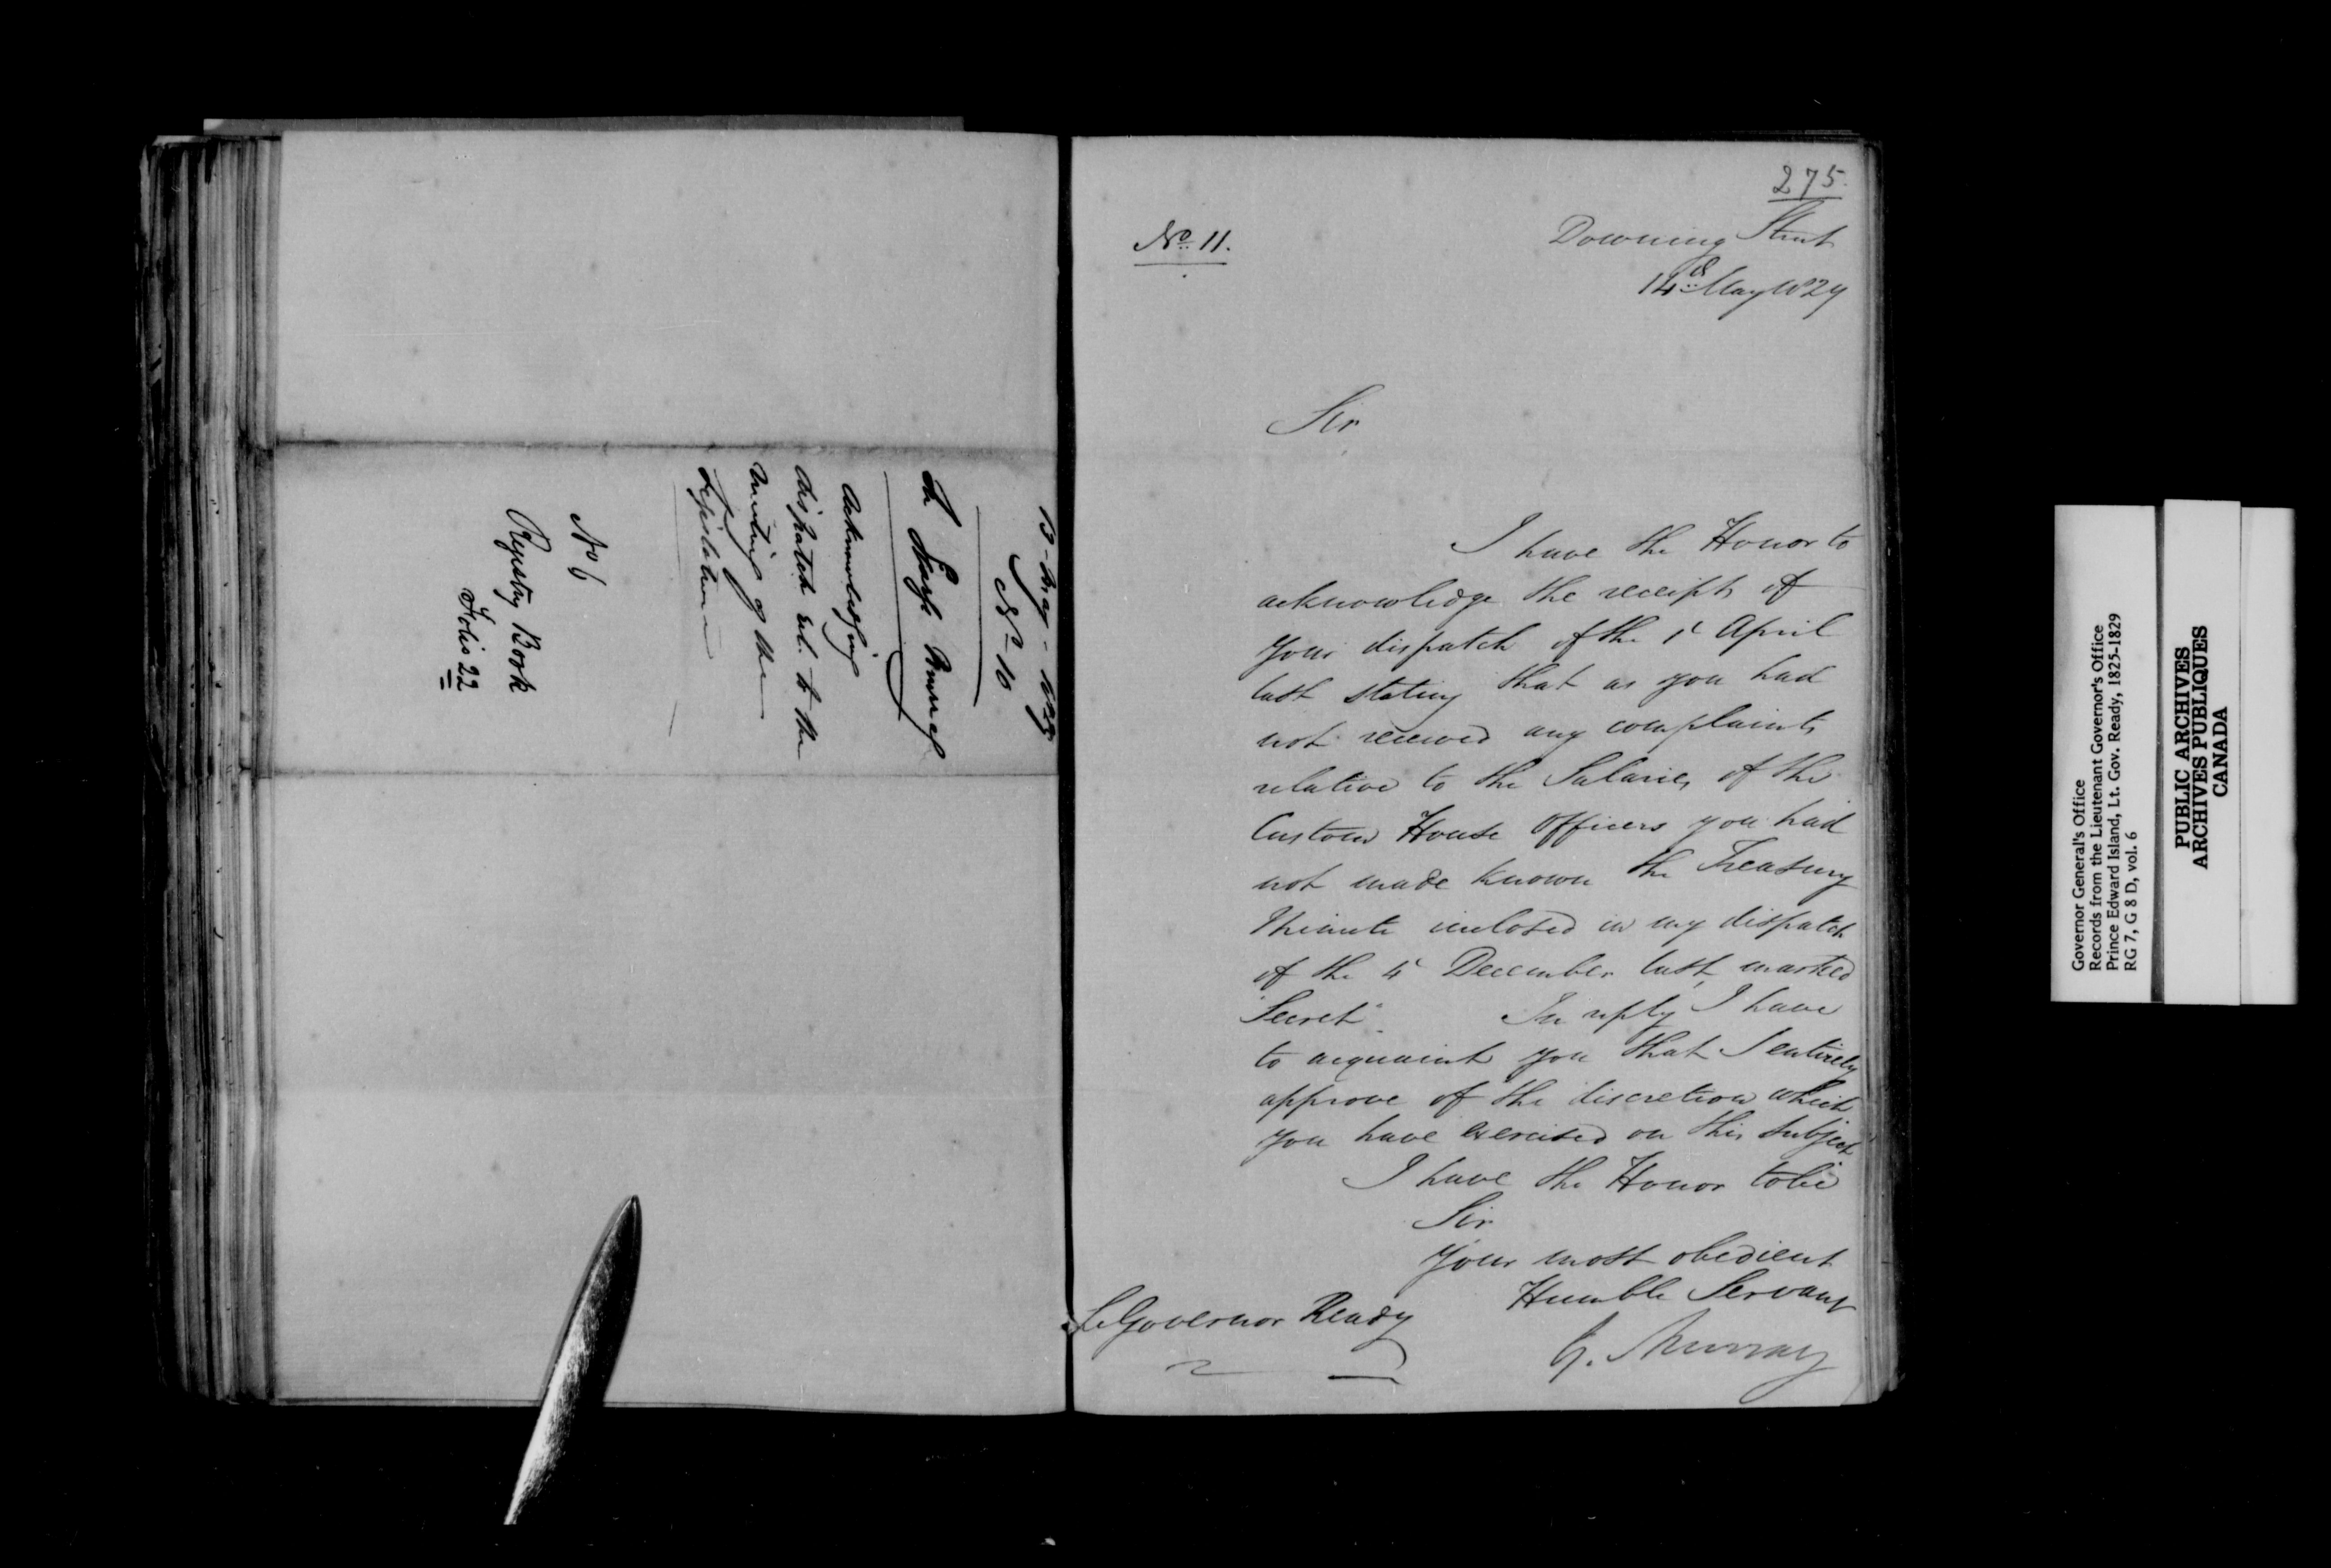 13 - May - 1829
No 10
Sr George Murray
Acknowledging
dispatch rel. to the
meeting of the
Legislature
No 6
Registry Book
Folio 22
275.
No. 11.
Downing Street
14th May 1829
Sir
I have the Honor to
acknowledge the receipt of
your dispatch of the 1t April
last stating that as you had
not received any complaints
relative to the Salaries of the
Custom House Officers you had
not made known the Treasury
Minute inclosed in my dispatch
of the 4t December last, marked
"Secret". In reply I have
to acquaint you that I entirely
approve of the discretion which
you have exercised on this subject
I have the Honor to be
Sir
Your most obedient
Humble Servant
G. Murray
Lt Governor Ready
Governor General's Office
Records from the Lieutenant Governor's Office
Prince Edward Island, Lt. Gov. Ready, 1825-1829
RG 7, G 8 D, vol. 6
PUBLIC ARCHIVES
ARCHIVES PUBLIQUES
CANADA